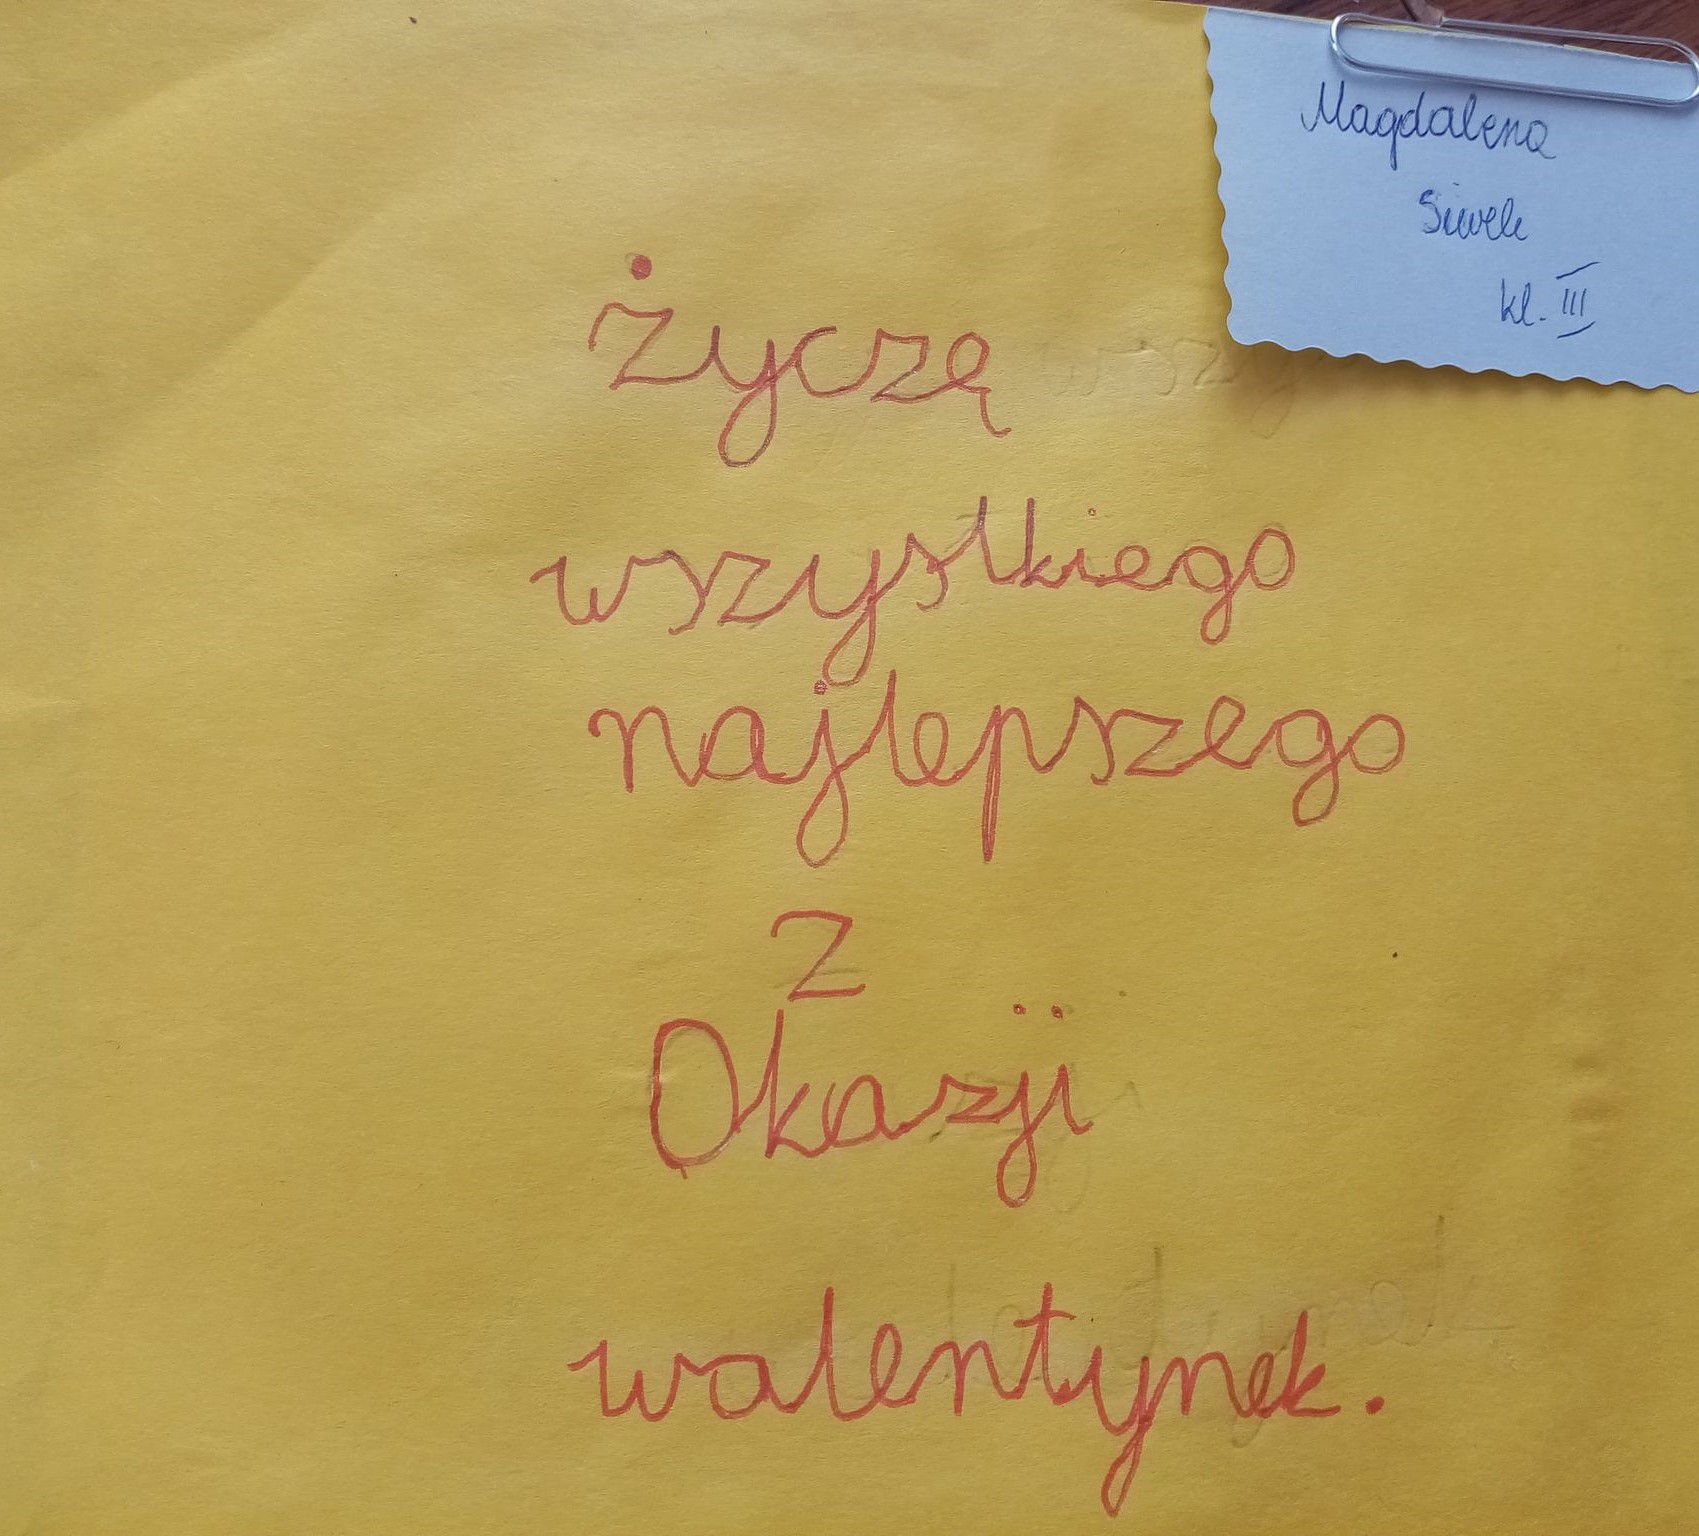 Magdalena
Siwek
kl. III
Życzę
wszystkiego
najlepszego
z
Okazji
walentynek.